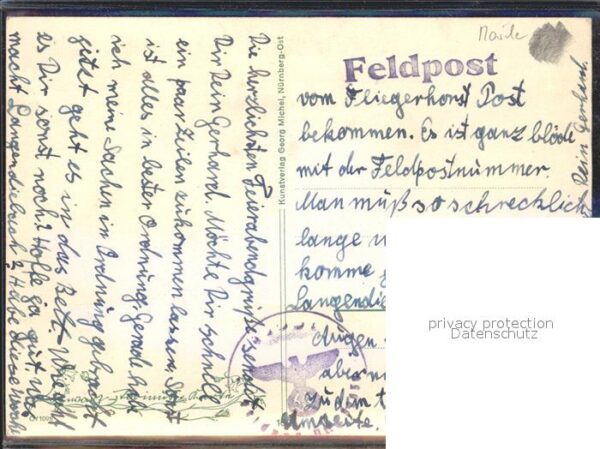 Die herzlichsten Feierabendgrüße sendet
Dir Dein Gerhard. Möchte Dir schnell
ein paar Zeilen zukommen lassen. Sonst
ist alles in bester Ordnung. Gerade habe
ich meine Sachen in Ordnung gebracht
jetzt geht es in das Bett. Wie geht
es Dir sonst noch? Hoffe ja gut. Was
macht Langendiebach? Habe diese Woche
Kunstverlag Georg Michel, Nürnberg-Ost
Feldpost
vom Fliegerhorst Post
bekommen. Es ist ganz blöde
mit der Feldpostnummer.
Man muß so schrecklich
lange
komme
Langendie
Augen
aber
Zu dem
Umseite.
Dein Gerhard.
privacy protection
Datenschutz